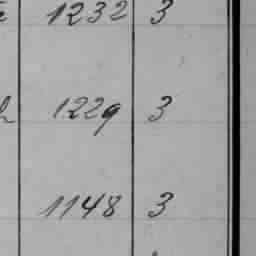 1232 3
1229 3
1148 3